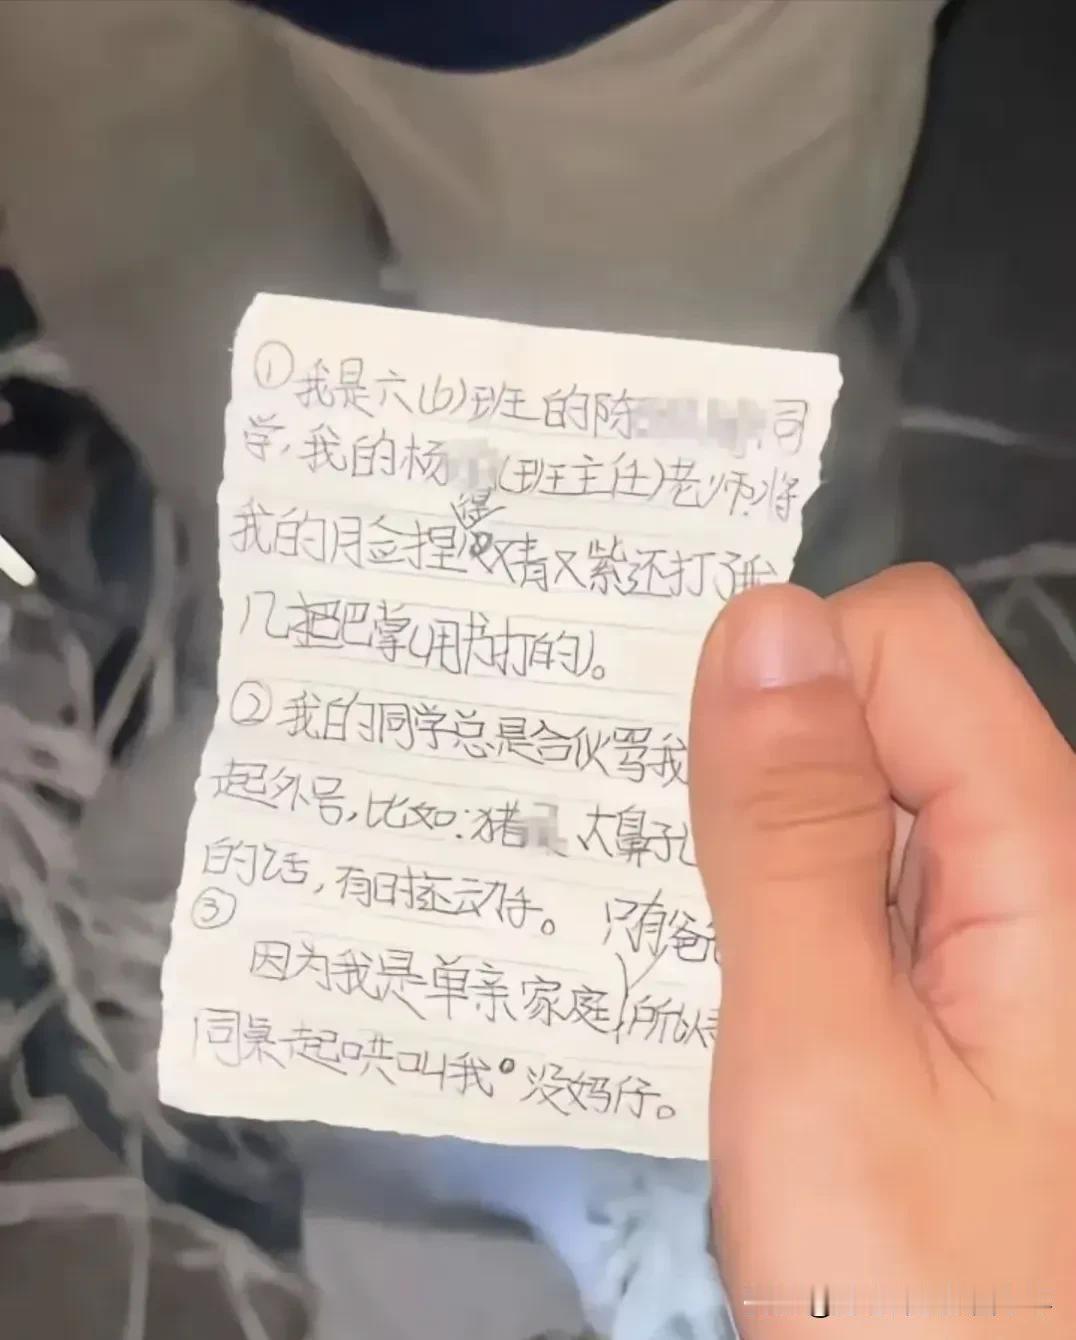 ①我是六(6)班的陈 同
学，我的杨 (班主任)老师将
我的脸捏得又青又紫还打了我
几把巴掌(用书打的)。
②我的同学总是合伙骂我
起外号，比如：猪 大鼻子
的话，有时还动手。 只有爸爸
③
因为我是单亲家庭，所以
同桌起哄叫我 没妈仔。